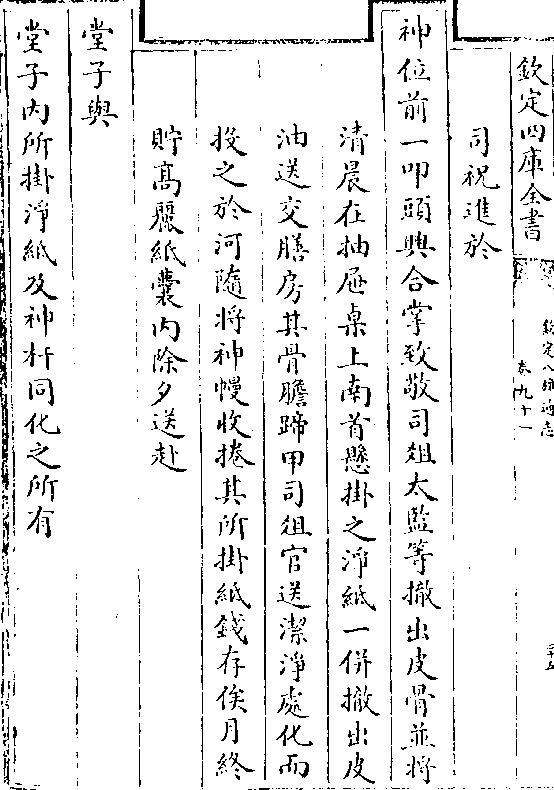 欽定四庫全書
欽定八旗通志
卷九十一
司祝進於
神位前一叩頭興合掌致敬司俎太監等撤出皮骨並將
清晨在抽屜桌上南首懸掛之淨紙一併撤出皮
油送交膳房其骨膽蹄甲司俎官送潔淨處化而
投之於河隨將神幔收捲其所掛紙錢存俟月終
貯高麗紙囊內除夕送赴
堂子與
堂子內所掛淨紙及神杆同化之所有